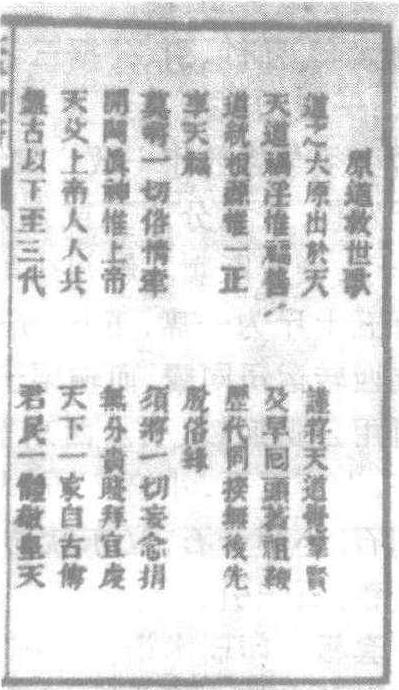 原道救世歌
道之大原出於天 謹將天道覺羣賢
天道禍淫惟福善 及早回頭著祖鞭
道統根源惟一正 歷代同揆無後先
享天福 脫俗緣
莫將一切俗情牽 須將一切妄念捐
開闢真神惟上帝 無分貴賤拜宜虔
天父上帝人人共 天下一家自古傳
盤古以下至三代 君民一體敬皇天